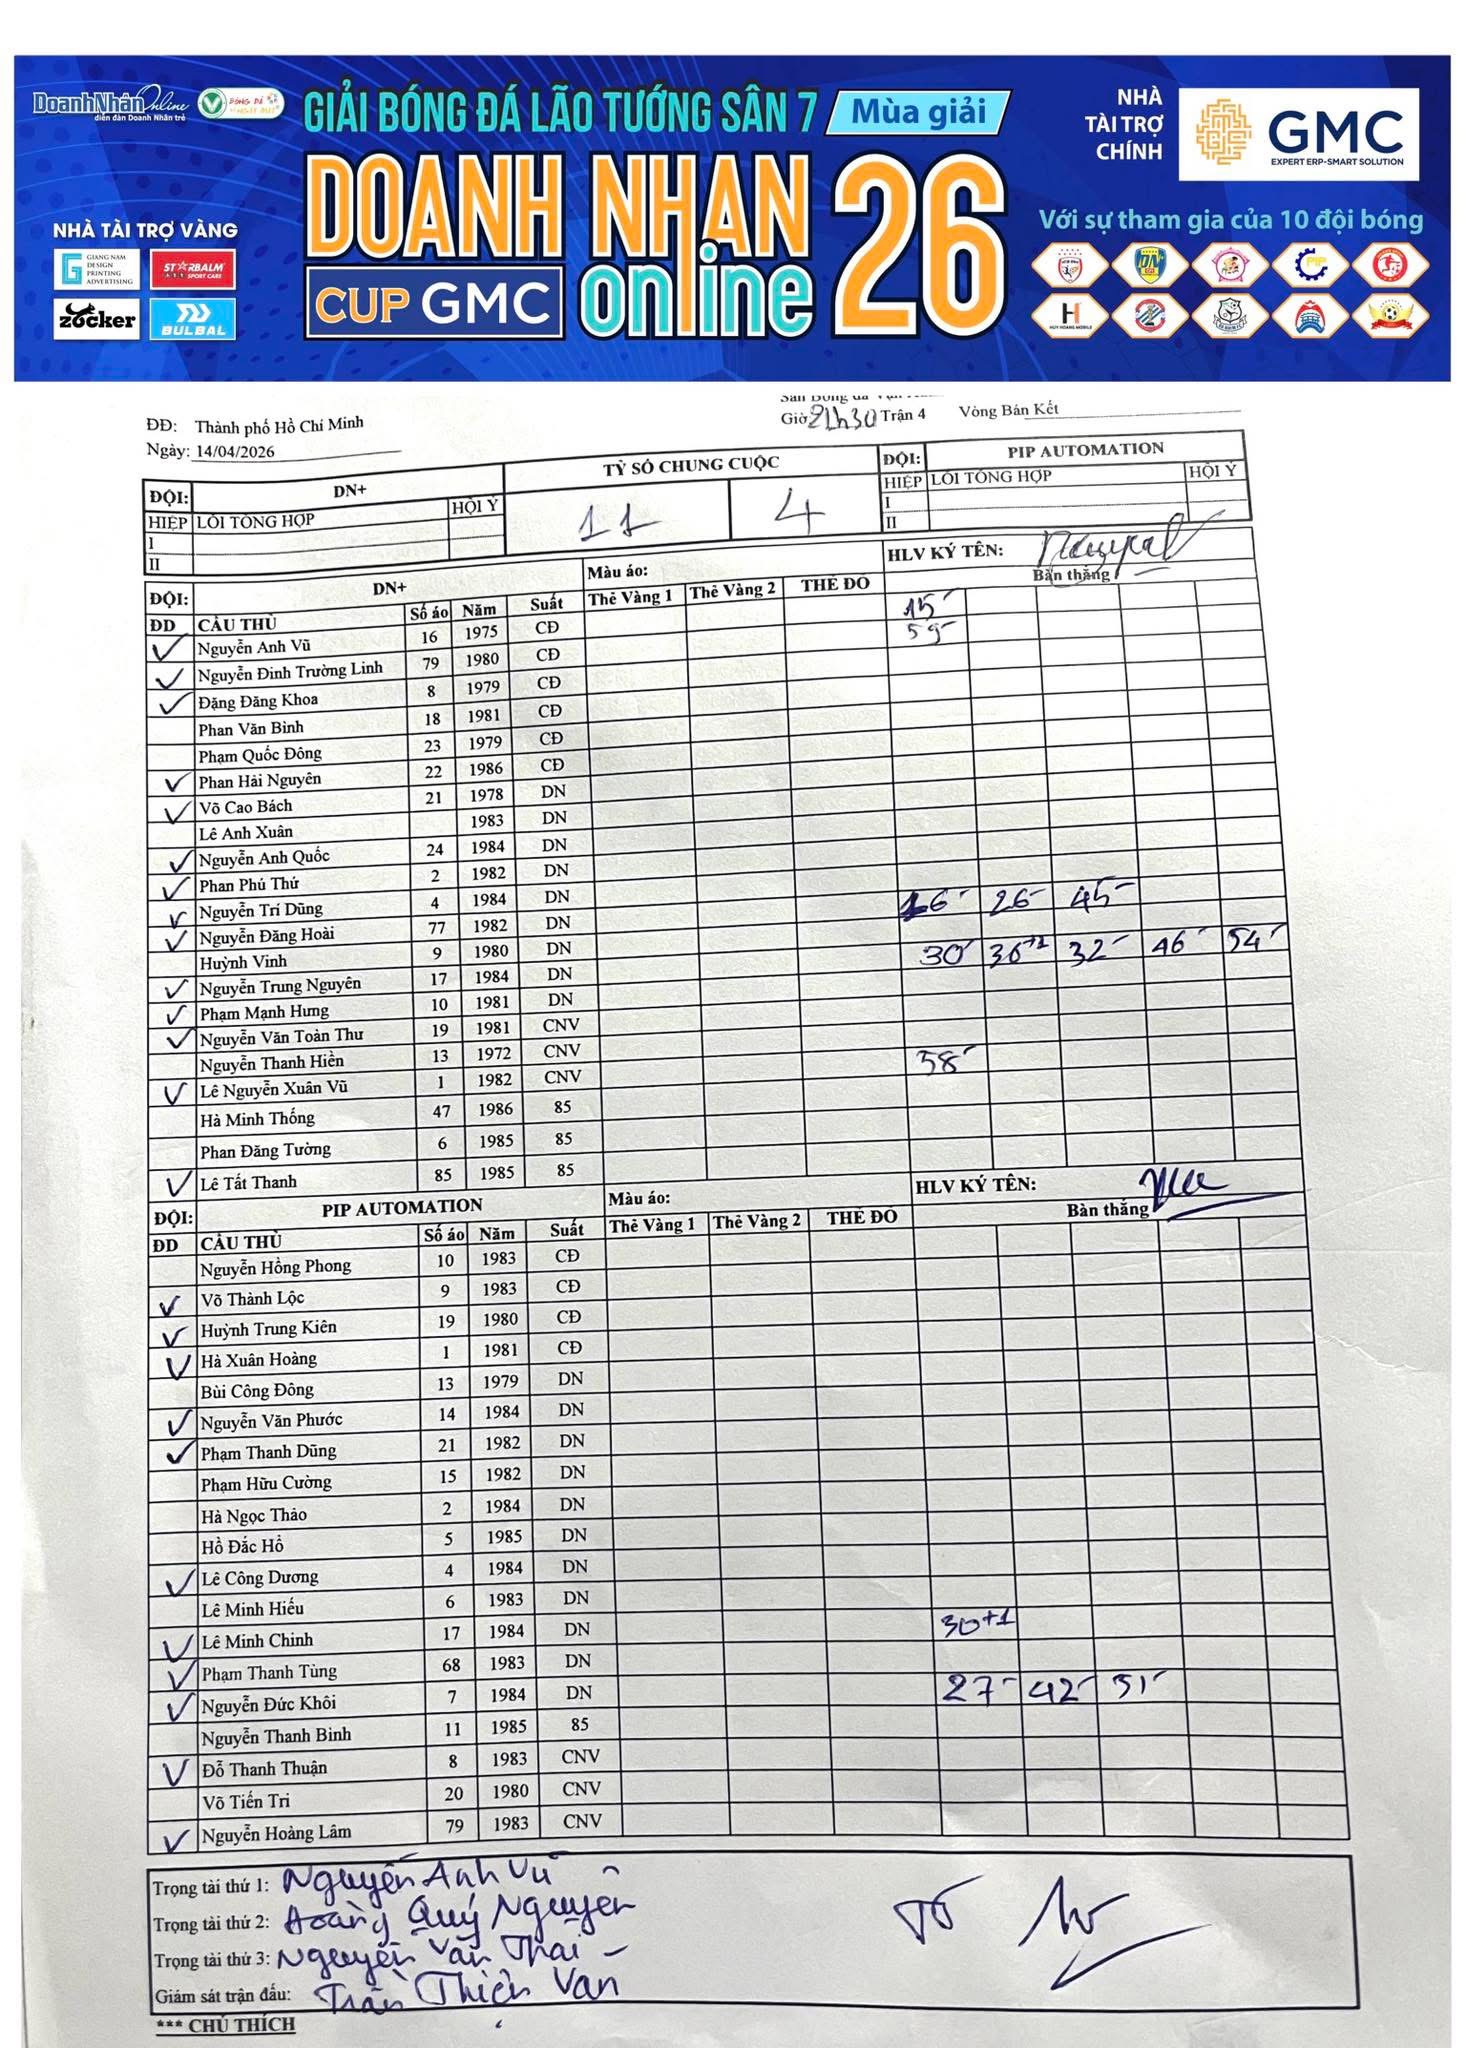 DoanhNhânOnline
diễn đàn Doanh Nhân trẻ
GIẢI BÓNG ĐÁ LÃO TƯỚNG SÂN 7 Mùa giải
DOANH NHAN online 26
CUP GMC
NHÀ TÀI TRỢ CHÍNH
GMC
EXPERT ERP-SMART SOLUTION
NHÀ TÀI TRỢ VÀNG
GIANG NAM DESIGN PRINTING ADVERTISING
STARBALM
SPORT CARE
zocker
BULBAL
Với sự tham gia của 10 đội bóng
HUY HOANG MOBILE
ĐĐ: Thành phố Hồ Chí Minh
Giờ 21h30 Trận 4 Vòng Bán Kết
Ngày: 14/04/2026
ĐỘI: DN+ TỶ SỐ CHUNG CUỘC ĐỘI: PIP AUTOMATION
HIỆP LỖI TỔNG HỢP HỘI Ý 11 4 HIỆP LỖI TỔNG HỢP HỘI Ý
I I
II II
ĐỘI: DN+ Màu áo: HLV KÝ TÊN:
ĐD CẦU THỦ Số áo Năm Suất Thẻ Vàng 1 Thẻ Vàng 2 THẺ ĐỎ Bàn thắng
Nguyễn Anh Vũ 16 1975 CĐ 15'
Nguyễn Đình Trường Linh 79 1980 CĐ 59'
Đặng Đăng Khoa 8 1979 CĐ
Phan Văn Bình 18 1981 CĐ
Phạm Quốc Đông 23 1979 CĐ
Phan Hải Nguyên 22 1986 CĐ
Võ Cao Bách 21 1978 DN
Lê Anh Xuân 1983 DN
Nguyễn Anh Quốc 24 1984 DN
Phan Phú Thứ 2 1982 DN
Nguyễn Trí Dũng 4 1984 DN 26' 45'
Nguyễn Đăng Hoài 77 1982 DN
Huỳnh Vinh 9 1980 DN 30' 30+1 32' 46' 54'
Nguyễn Trung Nguyên 17 1984 DN
Phạm Mạnh Hưng 10 1981 DN
Nguyễn Văn Toàn Thư 19 1981 CNV
Nguyễn Thanh Hiền 13 1972 CNV
Lê Nguyễn Xuân Vũ 1 1982 CNV 58'
Hà Minh Thống 47 1986 85
Phan Đăng Tường 6 1985 85
Lê Tất Thanh 85 1985 85
ĐỘI: PIP AUTOMATION Màu áo: HLV KÝ TÊN:
ĐD CẦU THỦ Số áo Năm Suất Thẻ Vàng 1 Thẻ Vàng 2 THẺ ĐỎ Bàn thắng
Nguyễn Hồng Phong 10 1983 CĐ
Võ Thành Lộc 9 1983 CĐ
Huỳnh Trung Kiên 19 1980 CĐ
Hà Xuân Hoàng 1 1981 CĐ
Bùi Công Đông 13 1979 DN
Nguyễn Văn Phước 14 1984 DN
Phạm Thanh Dũng 21 1982 DN
Phạm Hữu Cường 15 1982 DN
Hà Ngọc Thảo 2 1984 DN
Hồ Đắc Hổ 5 1985 DN
Lê Công Dương 4 1984 DN
Lê Minh Hiếu 6 1983 DN
Lê Minh Chinh 17 1984 DN 30+1
Phạm Thanh Tùng 68 1983 DN
Nguyễn Đức Khôi 7 1984 DN 27' 42' 51'
Nguyễn Thanh Bình 11 1985 85
Đỗ Thanh Thuận 8 1983 CNV
Võ Tiến Tri 20 1980 CNV
Nguyễn Hoàng Lâm 79 1983 CNV
Trọng tài thứ 1: Nguyễn Anh Vũ
Trọng tài thứ 2: Hoàng Quý Nguyên
Trọng tài thứ 3: Nguyễn Văn Thái
Giám sát trận đấu: Trần Thiện Văn
*** CHÚ THÍCH